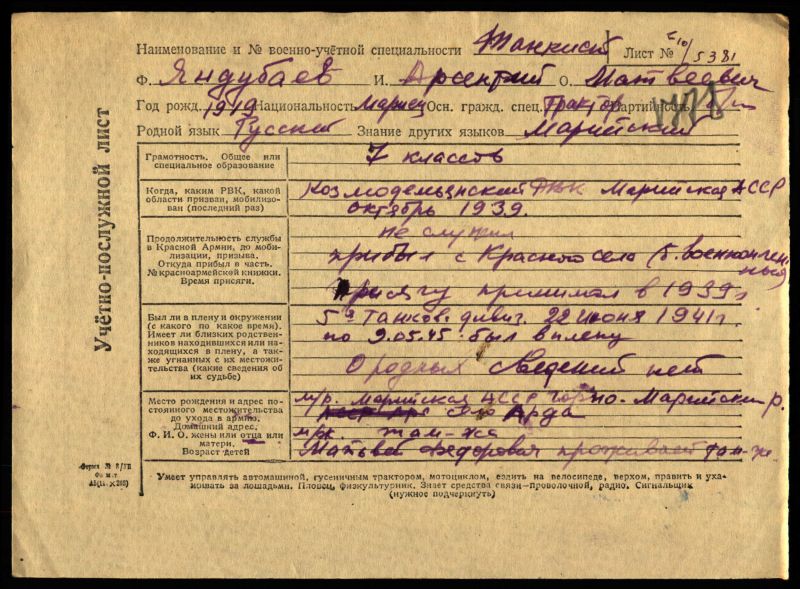 Учётно-послужной лист
Наименование и № военно-учётной специальности Танкист Лист № 5381
Ф. Яндубаев И. Арсентий О. Матвеевич
Год рожд. 1919 Национальность Мариец Осн. гражд. спец. Трактор. Партийность б/п
Родной язык Русский Знание других языков Марийский
Грамотность. Общее или
специальное образование
7 классов
Когда, каким РВК, какой
области призван, мобилизо-
ван (последний раз)
Козмодемьянский РВК Марийская АССР
октябрь 1939.
Продолжительность службы
в Красной Армии, до моби-
лизации, призыва.
Откуда прибыл в часть.
№ красноармейской книжки.
Время присяги.
не служил
прибыл с Красного села (б. военнопленный)
Присягу принимал в 1939 г.
Был ли в плену и окружении
(с какого по какое время).
Имеет ли близких родствен-
ников находившихся или на-
ходящихся в плену, а так-
же угнанных с их местожи-
тельства (какие сведения об
их судьбе)
5я Танков. дивиз. 22 июня 1941 г.
по 9.05.45 был в плену
О родных сведений нет
Место рождения и адрес по-
стоянного местожительства
до ухода в армию.
Домашний адрес.
Ф. И. О. жены или отца или
матери.
Возраст детей
м/р. Марийская АССР Горно-Марийский р.
Арда
там-же
Матвей Федорович проживает там-же
Форма № 8/УП
Ф-м т
Умеет управлять автомашиной, гусеничным трактором, мотоциклом, ездить на велосипеде, верхом, править и уха-
живать за лошадьми. Пловец, физкультурник. Знает средства связи—проволочной, радио. Сигнальщик
(нужное подчеркнуть)